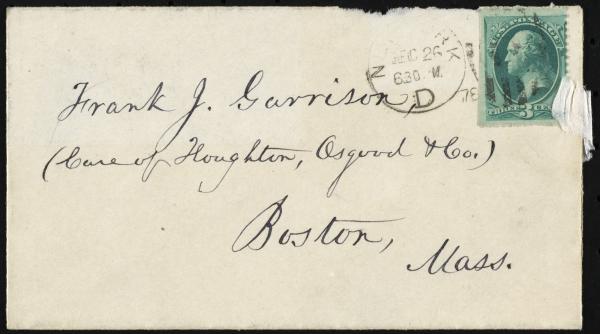 Frank J. Garrison,
(Care of Houghton, Osgood & Co.)
Boston,
Mass.
DEC 26
630
D
78
U.S. POSTAGE
3